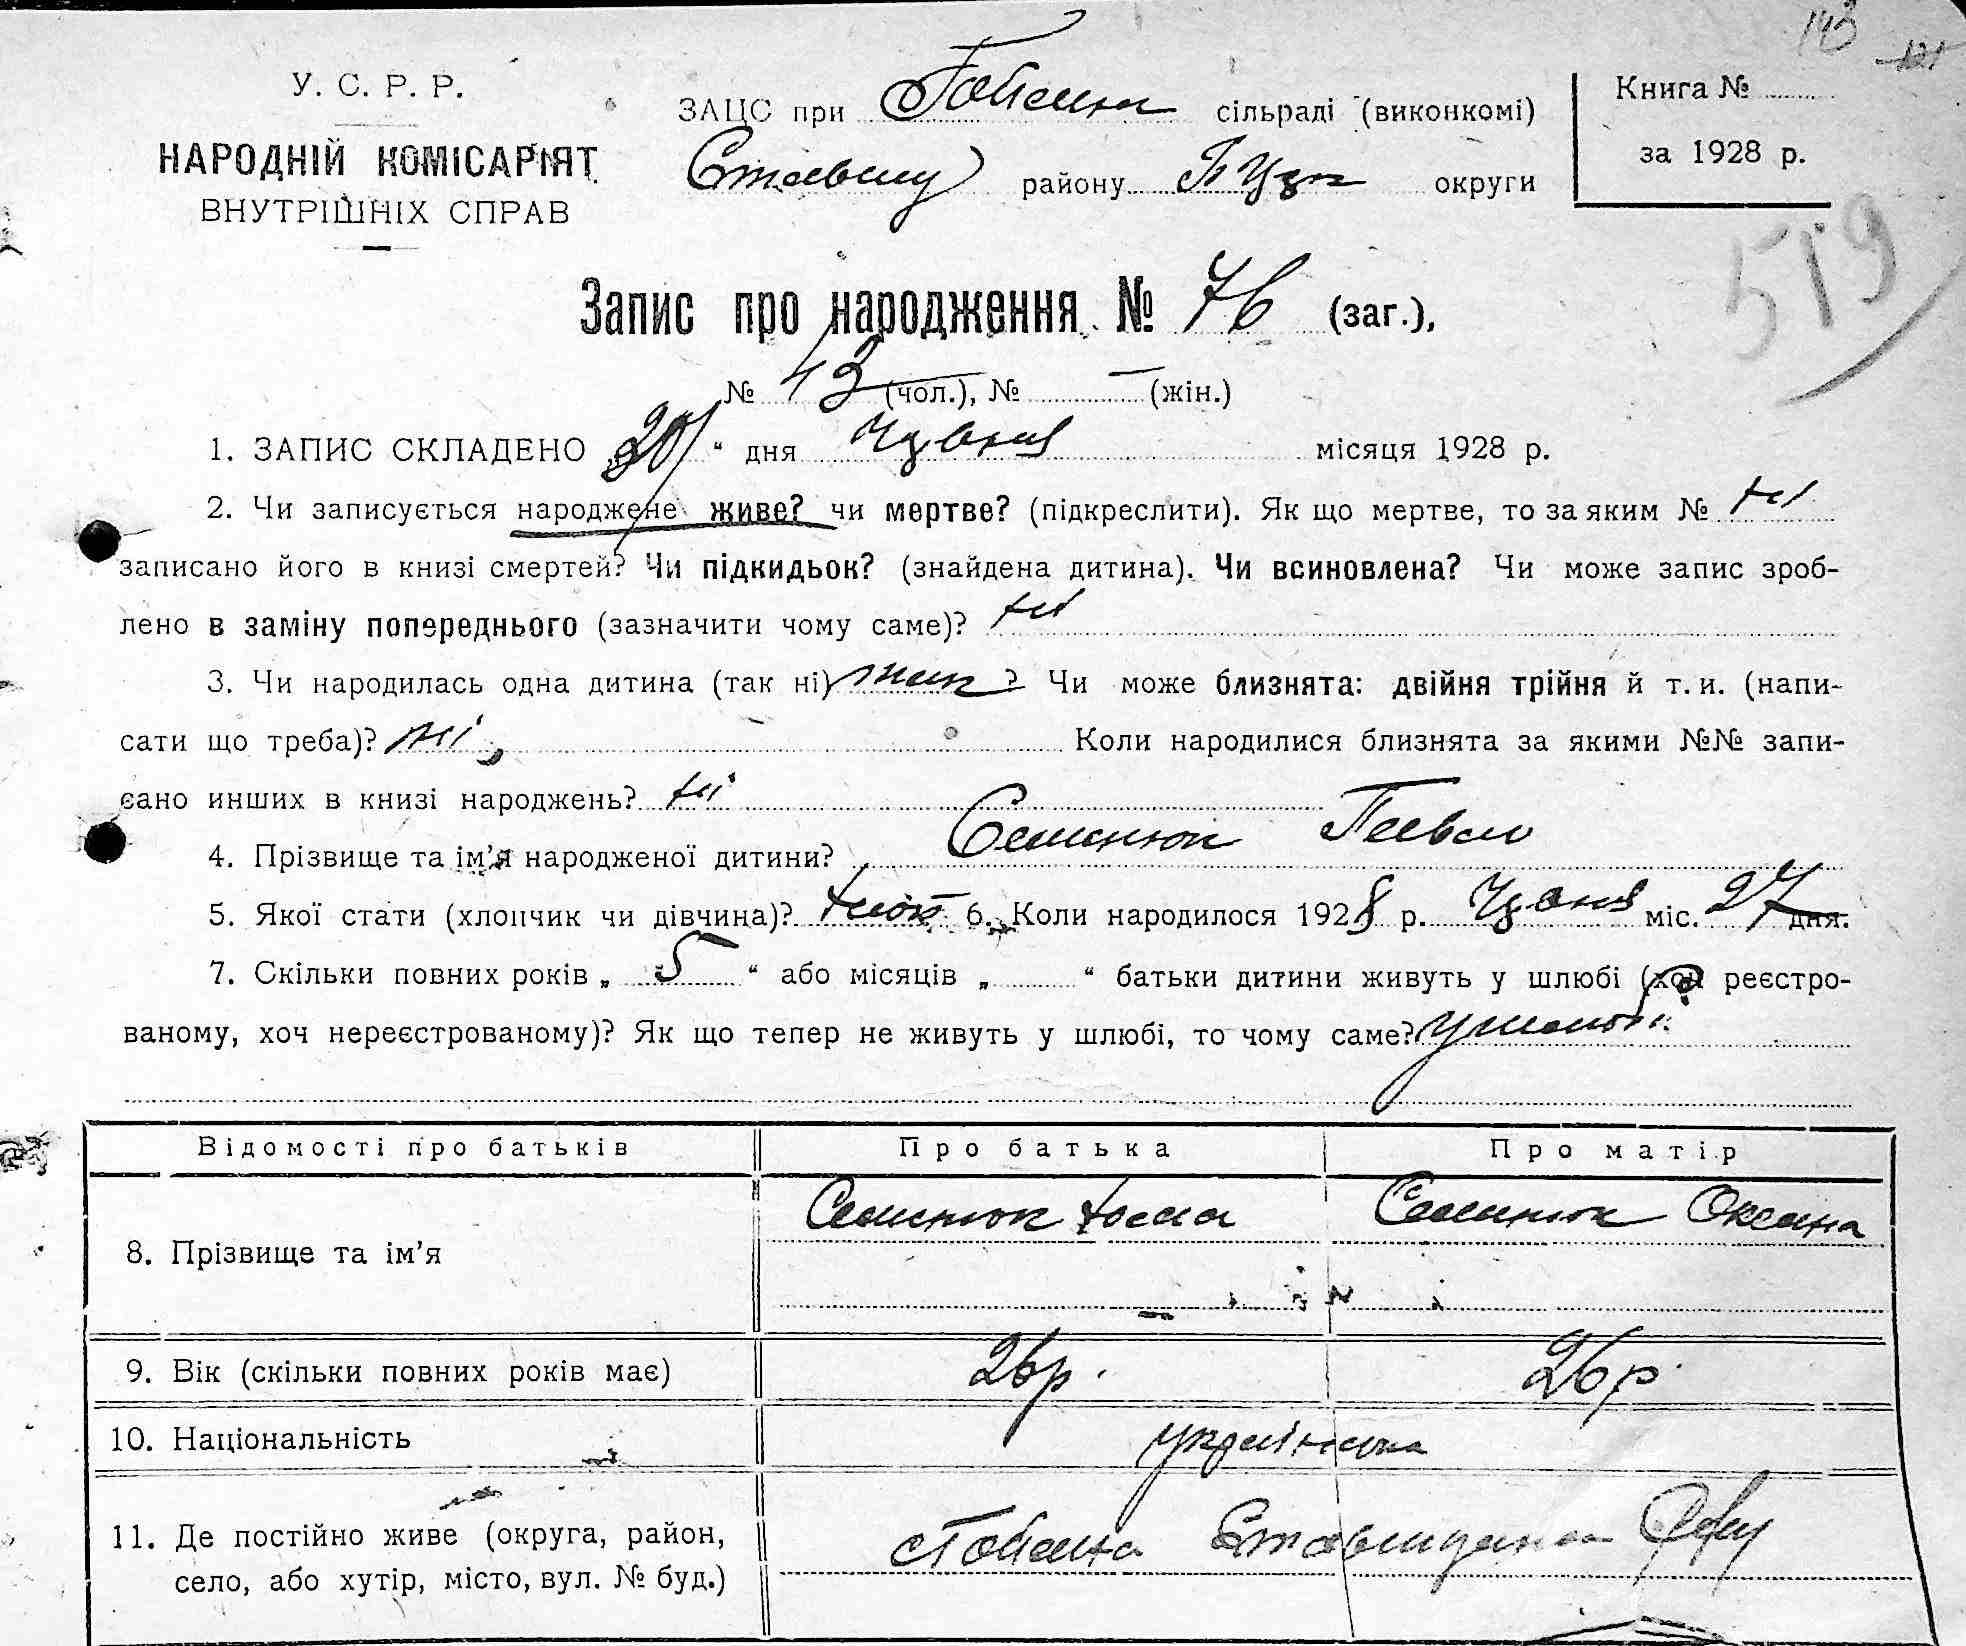 143
У. С. Р. Р.
НАРОДНІЙ КОМІСАРІЯТ
ВНУТРІШНІХ СПРАВ
ЗАЦС при сільраді (виконкомі)
Ставищ району БЦерк округи
Книга №
за 1928 р.
519
Запис про народження № 76 (заг.),
№ 43 (чол.), № — (жін.)
1. ЗАПИС СКЛАДЕНО „30“ дня Червня місяця 1928 р.
2. Чи записується народжене живе? чи мертве? (підкреслити). Як що мертве, то за яким № ні
записано його в книзі смертей? Чи підкидьок? (знайдена дитина). Чи всиновлена? Чи може запис зроб-
лено в заміну попереднього (зазначити чому саме)? ні
3. Чи народилась одна дитина (так ні) так? Чи може близнята: двійня трійня й т. и. (напи-
сати що треба)? ні Коли народилися близнята за якими №№ запи-
сано инших в книзі народжень? ні
4. Прізвище та ім’я народженої дитини? Семенюк Павло
5. Якої стати (хлопчик чи дівчина)? 6. Коли народилося 1928 р. Червня міс. 27 дня.
7. Скільки повних років „ 5 “ або місяців „ “ батьки дитини живуть у шлюбі (хоч реєстро-
ваному, хоч нереєстрованому)? Як що тепер не живуть у шлюбі, то чому саме?
Відомості про батьків Про батька Про матір
8. Прізвище та ім’я Семенюк Семенюк Оксана
9. Вік (скільки повних років має) 26р. 26р.
10. Національність українська
11. Де постійно живе (округа, район,
село, або хутір, місто, вул. № буд.)